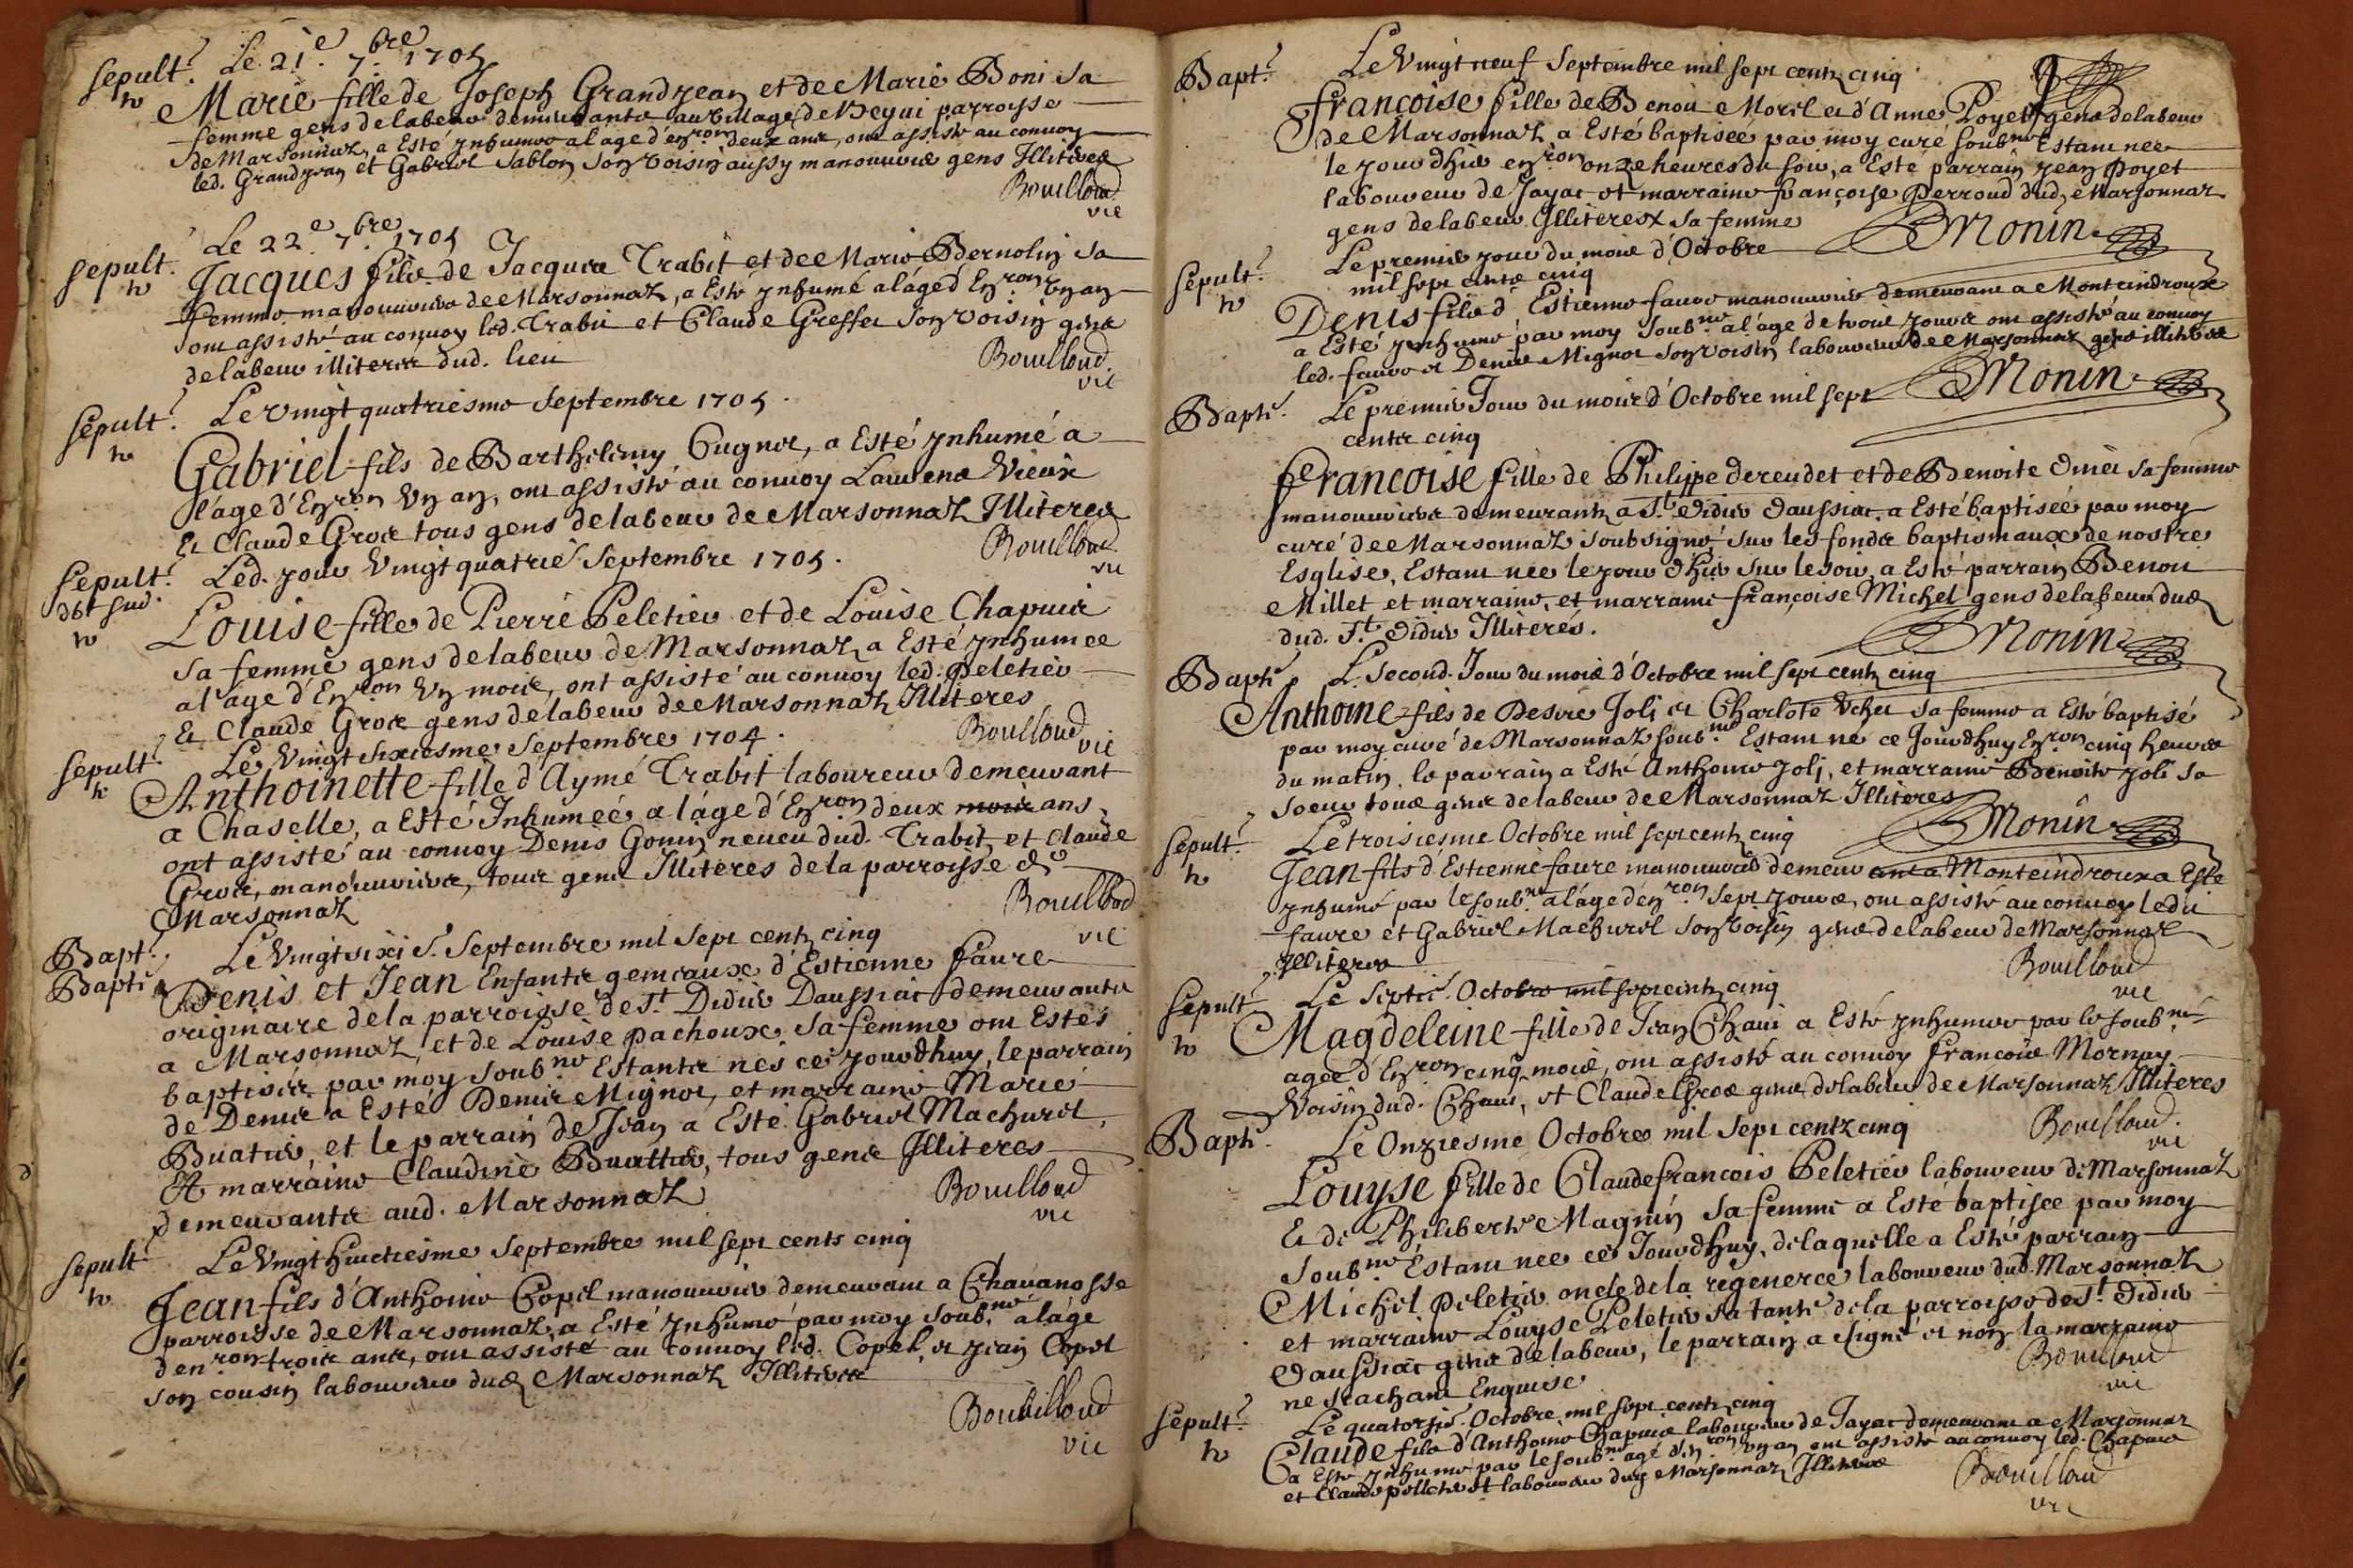 Sepult.e Le 21e. 7.bre 1705
Marie fille de Joseph Grandjean et de Marie Boni sa
femme gens de labeur demeurants au village de Bequi parroisse
de Marsonnaz, a Esté ynhumée a l'age d'en.ron deux ans, ont assisté au convoy
led. Grandjean et Gabriel Sablon son voisin aussy manouuvrier gens Illiteres
Bouilloud
vic
Sepult.e Le 22e. 7.bre 1705
Jacques fils de Jacques Trabit et de Marie Bernolin sa
femme manouuvriers de Marsonnaz, a Esté ynhumé a l'age d'En.ron un an
ont assisté au convoy led. Trabit et Claude Greffet son voisin gens
de labeur illiteres dud. lieu
Bouilloud
vic
Sepult.e Le vingt quatriesme Septembre 1705.
Gabriel fils de Barthelemy Cugnet, a Esté ynhumé a
l'age d'En.ron Un an, ont assisté au convoy Laurens Vieux
Et Claude Gros tous gens de labeur de Marsonnaz Illiteres
Bouilloud
vic
Sepult.e Led. jour Vingt quatrie. Septembre 1705.
Louise fille de Pierre Peletier et de Louise Chapuis
sa femme gens de labeur de Marsonnaz a Esté ynhumée
a l'age d'En.ron Un mois, ont assisté au convoy led. Peletier
Et Claude Gros gens de labeur de Marsonnaz Illiteres
Bouilloud
vic
Sepult.e Le Vingt sixiesme Septembre 1705.
Anthoinette fille d'Aymé Trabit laboureur demeurant
a Chaselle, a Esté Inhumée a l'age d'En.ron deux mois ans,
ont assisté au convoy Denis Gonin neveu dud. Trabit et Claude
Gros, manouuvriers, tous gens Illiteres de la parroisse de
Marsonnaz
Bouilloud
vic
Bapt.e Le Vingt sixie. Septembre mil sept centz cinq
Bapt.e Denis et Jean Enfants gemeaux d'Estienne Faure
originaire de la parroisse de St. Didier Daussiat demeurants
a Marsonnaz, et de Louise Pachoux sa femme ont Estés
baptisés par moy soub.né Estants nés ce jourdhuy, le parrain
de Denis a Esté Denis Mignot, et marraine Marie
Buatier, et le parrain de Jean a Esté Gabriel Machurel,
Et marraine Claudine Buattier, tous gens Illiteres
demeurants aud. Marsonnaz
Bouilloud
vic
Sepult.e Le Vingt huictiesme Septembre mil sept cents cinq
Jean fils d'Anthoine Copel manouuvrier demeurant a Chavanosse
parroisse de Marsonnaz, a Esté ynhumé par moy soub.né a l'age
d'en.ron trois ans, ont assisté au convoy led. Copel, et Jean Copel
son cousin laboureur dud. Marsonnaz Illiteres
Bouilloud
vic
Bapt.e Le Vingt neuf Septembre mil sept centz cinq
françoise fille de Benoit Morel et d'Anne Poyet gens de labeur
de Marsonnaz a Esté baptisée par moy curé soub.né Estant née
le jour dhier en.ron onze heures du soir, a Esté parrain Jean Poyet
laboureur de Jayat et marraine françoise Perroud dud. Marsonnaz
gens de labeur Illiteres sa femme
Monin
Sepult.e Le premier jour du mois d'Octobre
mil sept cents cinq
Denis fils d'Estienne faure manouuvrier demeurant a Monteindroux
a Esté ynhumé par moy soub.né a l'age de trois jours ont assisté au convoy
led. faure et Denis Mignot son voisin laboureur de Marsonnaz gens illiteres
Monin
Bapt.e Le premier Jour du mois d'Octobre mil sept
cents cinq
Francoise fille de Philippe Dereudet et de Benoite sa femme
manouuvriers demeurantz a St. Didier Daussiat, a Esté baptisée par moy
curé de Marsonnaz soubsigné sur les fonds baptismaux de nostre
Esglise, Estant née le jour dhier sur le soir, a Esté parrain Benoit
Millet et marraine, et marraine françoise Michel gens de labeur dud.
dud. St. Didier Illiterés.
Monin
Bapt.e Le Second Jour du mois d'Octobre mil sept centz cinq
Anthoine fils de Desiré Joli et Charlote Vcher sa femme a Esté baptisé
par moy curé de Marsonnaz soub.né Estant né ce Jourdhuy En.ron cinq heures
du matin, le parrain a Esté Anthoine Joli, et marraine Benoite Joli sa
soeur tous gens de labeur de Marsonnaz Illiteres
Monin
Sepult.e Le troisiesme Octobre mil sept centz cinq
Jean fils d'Estienne faure manouuvrier demeurant a Monteindroux a Esté
ynhumé par le soub.né a l'age d'en.ron sept jours, ont assisté au convoy ledit
faure et Gabriel Machurel son voisin gens de labeur de Marsonnaz
Illiteres
Bouilloud
vic
Sepult.e Le Septie. Octobre mil sept centz cinq
Magdeleine fille de Jean Chanu a Esté ynhumée par le soub.né
agée d'En.ron cinq mois, ont assisté au convoy francois Mornay
Voisin dud. Chanu, et Claude Gros gens de labeur de Marsonnaz Illiteres
Bouilloud
vic
Bapt.e Le Onziesme Octobre mil sept centz cinq
Louyse fille de Claude francois Peletier laboureur de Marsonnaz
Et de Philiberte Magnin sa femme a Esté baptisée par moy
soub.né Estant née ce Jourdhuy, de laquelle a Esté parrain
Michel Peletier oncle de la regenerée laboureur dud. Marsonnaz
et marraine Louyse Peletier sa tante de la parroisse de St. Didier
Daussiat gens de labeur, le parrain a signé et non la marraine
ne scachant Enquise
Bouilloud
vic
Sepult.e Le quatorzie. Octobre mil sept centz cinq
Claude fils d'Anthoine Chapuis laboureur de Jayat demeurant a Marsonnaz
a Esté ynhumé par le soub.né agé d'en.ron un an ont assisté au convoy led. Chapuis
et Claude laboureur dud. Marsonnaz Illiteres
Bouilloud
vic